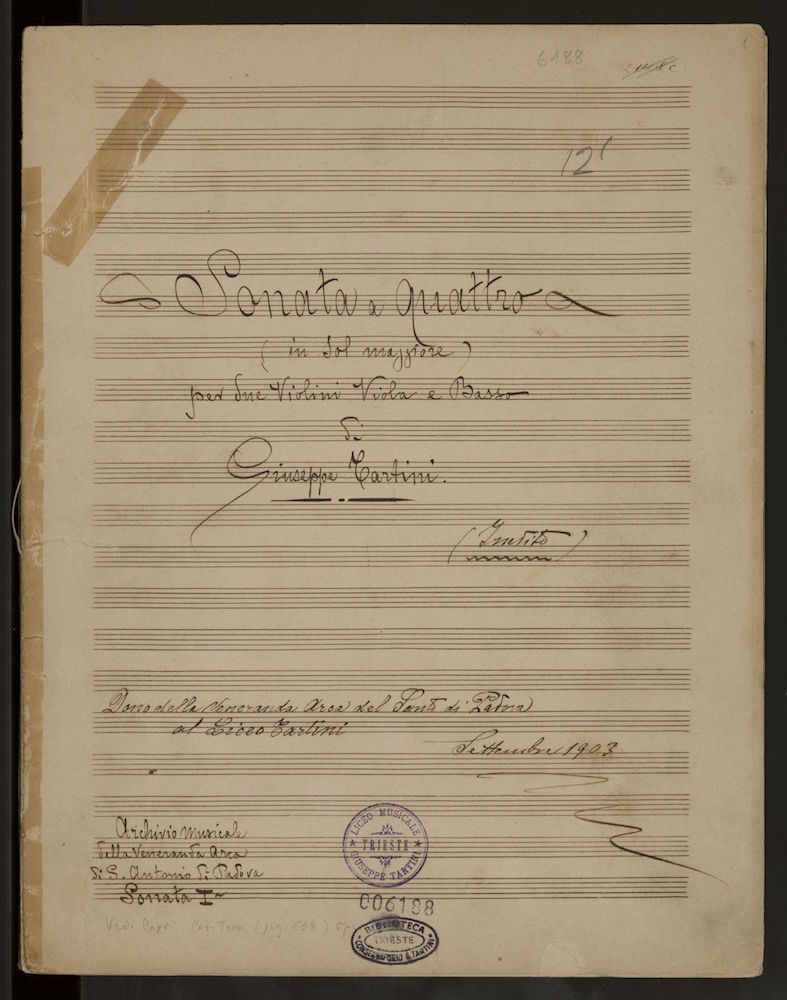 6188
1
12'
Sonata a quattro
(in Sol maggiore)
per due Violini Viola e Basso
di
Giuseppe Tartini.
(Inedito)
Dono della Veneranda Arca del Santo di Padova
al Liceo Tartini
Settembre 1903
Archivio Musicale
della Veneranda Arca
di S. Antonio di Padova
Sonata Iª
LICEO MUSICALE
TRIESTE
GIUSEPPE TARTINI
006188
Vedi Capri. Cat. Tem. (pag. 538)
BIBLIOTECA
TRIESTE
CONSERVATORIO G. TARTINI